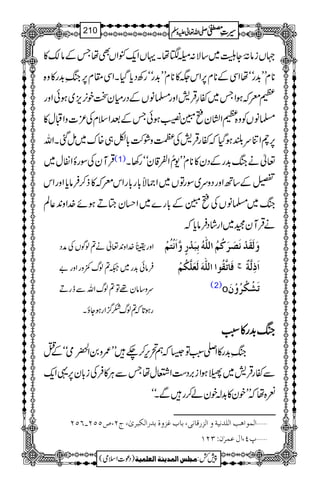 سیرتِ مصطفیٰ صلی اللہ تعالیٰ علیہ وسلم
210
جہاں زمانۂ جاہلیت میں سالانہ میلہ لگتا تھا۔ یہاں ایک کنواں بھی تھا جس کے مالک کا
نام ’’بدر‘‘ تھا اسی کے نام پر اس جگہ کا نام ’’بدر‘‘ رکھ دیا گیا۔ اسی مقام پر جنگ بدر کا وہ
عظیم معرکہ ہوا جس میں کفار قریش اور مسلمانوں کے درمیان سخت خونریزی ہوئی اور
مسلمانوں کو وہ عظیم الشان فتح مبین نصیب ہوئی جس کے بعد اسلام کی عزت و اقبال کا
پرچم اتنا سربلند ہو گیا کہ کفار قریش کی عظمت و شوکت بالکل ہی خاک میں مل گئی۔ اللہ
تعالیٰ نے جنگ بدر کے دن کا نام ’’یوم الفرقان‘‘ رکھا۔ (1) قرآن کی سورۂ انفال میں
تفصیل کے ساتھ اور دوسری سورتوں میں اجمالاً بار بار اس معرکہ کا ذکر فرمایا اور اس
جنگ میں مسلمانوں کی فتح مبین کے بارے میں احسان جتاتے ہوئے خداوند عالم
نے قرآن مجید میں ارشاد فرمایا کہ
وَلَقَدْ نَصَرَكُمُ اللّٰهُ بِبَدْرٍ وَّاَنْتُمْ
اَذِلَّةٌ ۚ فَاتَّقُوا اللّٰهَ لَعَلَّكُمْ
تَشْكُرُوْنَ o (2)
اور یقیناً خداوند تعالیٰ نے تم لوگوں کی مدد
فرمائی بدر میں جبکہ تم لوگ کمزور اور بے
سروسامان تھے تو تم لوگ اللہ سے ڈرتے
رہو تاکہ تم لوگ شکر گزار ہو جاؤ۔
جنگ بدر کا سبب
جنگ بدر کا اصلی سبب تو جیسا کہ ہم تحریر کر چکے ہیں ’’عمرو بن الحضرمی‘‘ کے قتل
سے کفار قریش میں پھیلا ہوا زبردست اشتعال تھا جس سے ہر کافر کی زبان پر یہی ایک
نعرہ تھا کہ ’’خون کا بدلہ خون لے کر رہیں گے۔‘‘
1……المواهب اللدنية و الزرقانی، باب غزوة بدر الكبرىٰ، ج٢، ص٢٥٥۔٢٥٦
2……پ٤، ال عمرٰن: ١٢٣
پیش کش: مجلس المدینۃ العلمیۃ (دعوتِ اسلامی)